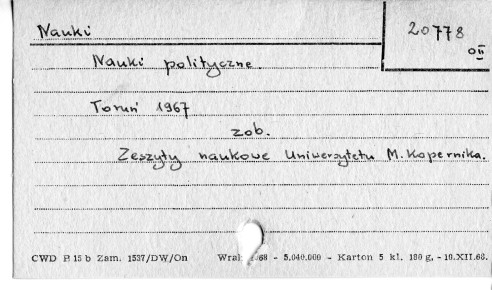 Nauki
20778
OII
Nauki polityczne.
Toruń 1967
zob.
Zeszyty naukowe Uniwersytetu M. Kopernika.
CWD P. 15 b Zam. 1537/DW/On 68 - 5.040.000 - Karton 5 kl. 180 g, - 10.XII.68.